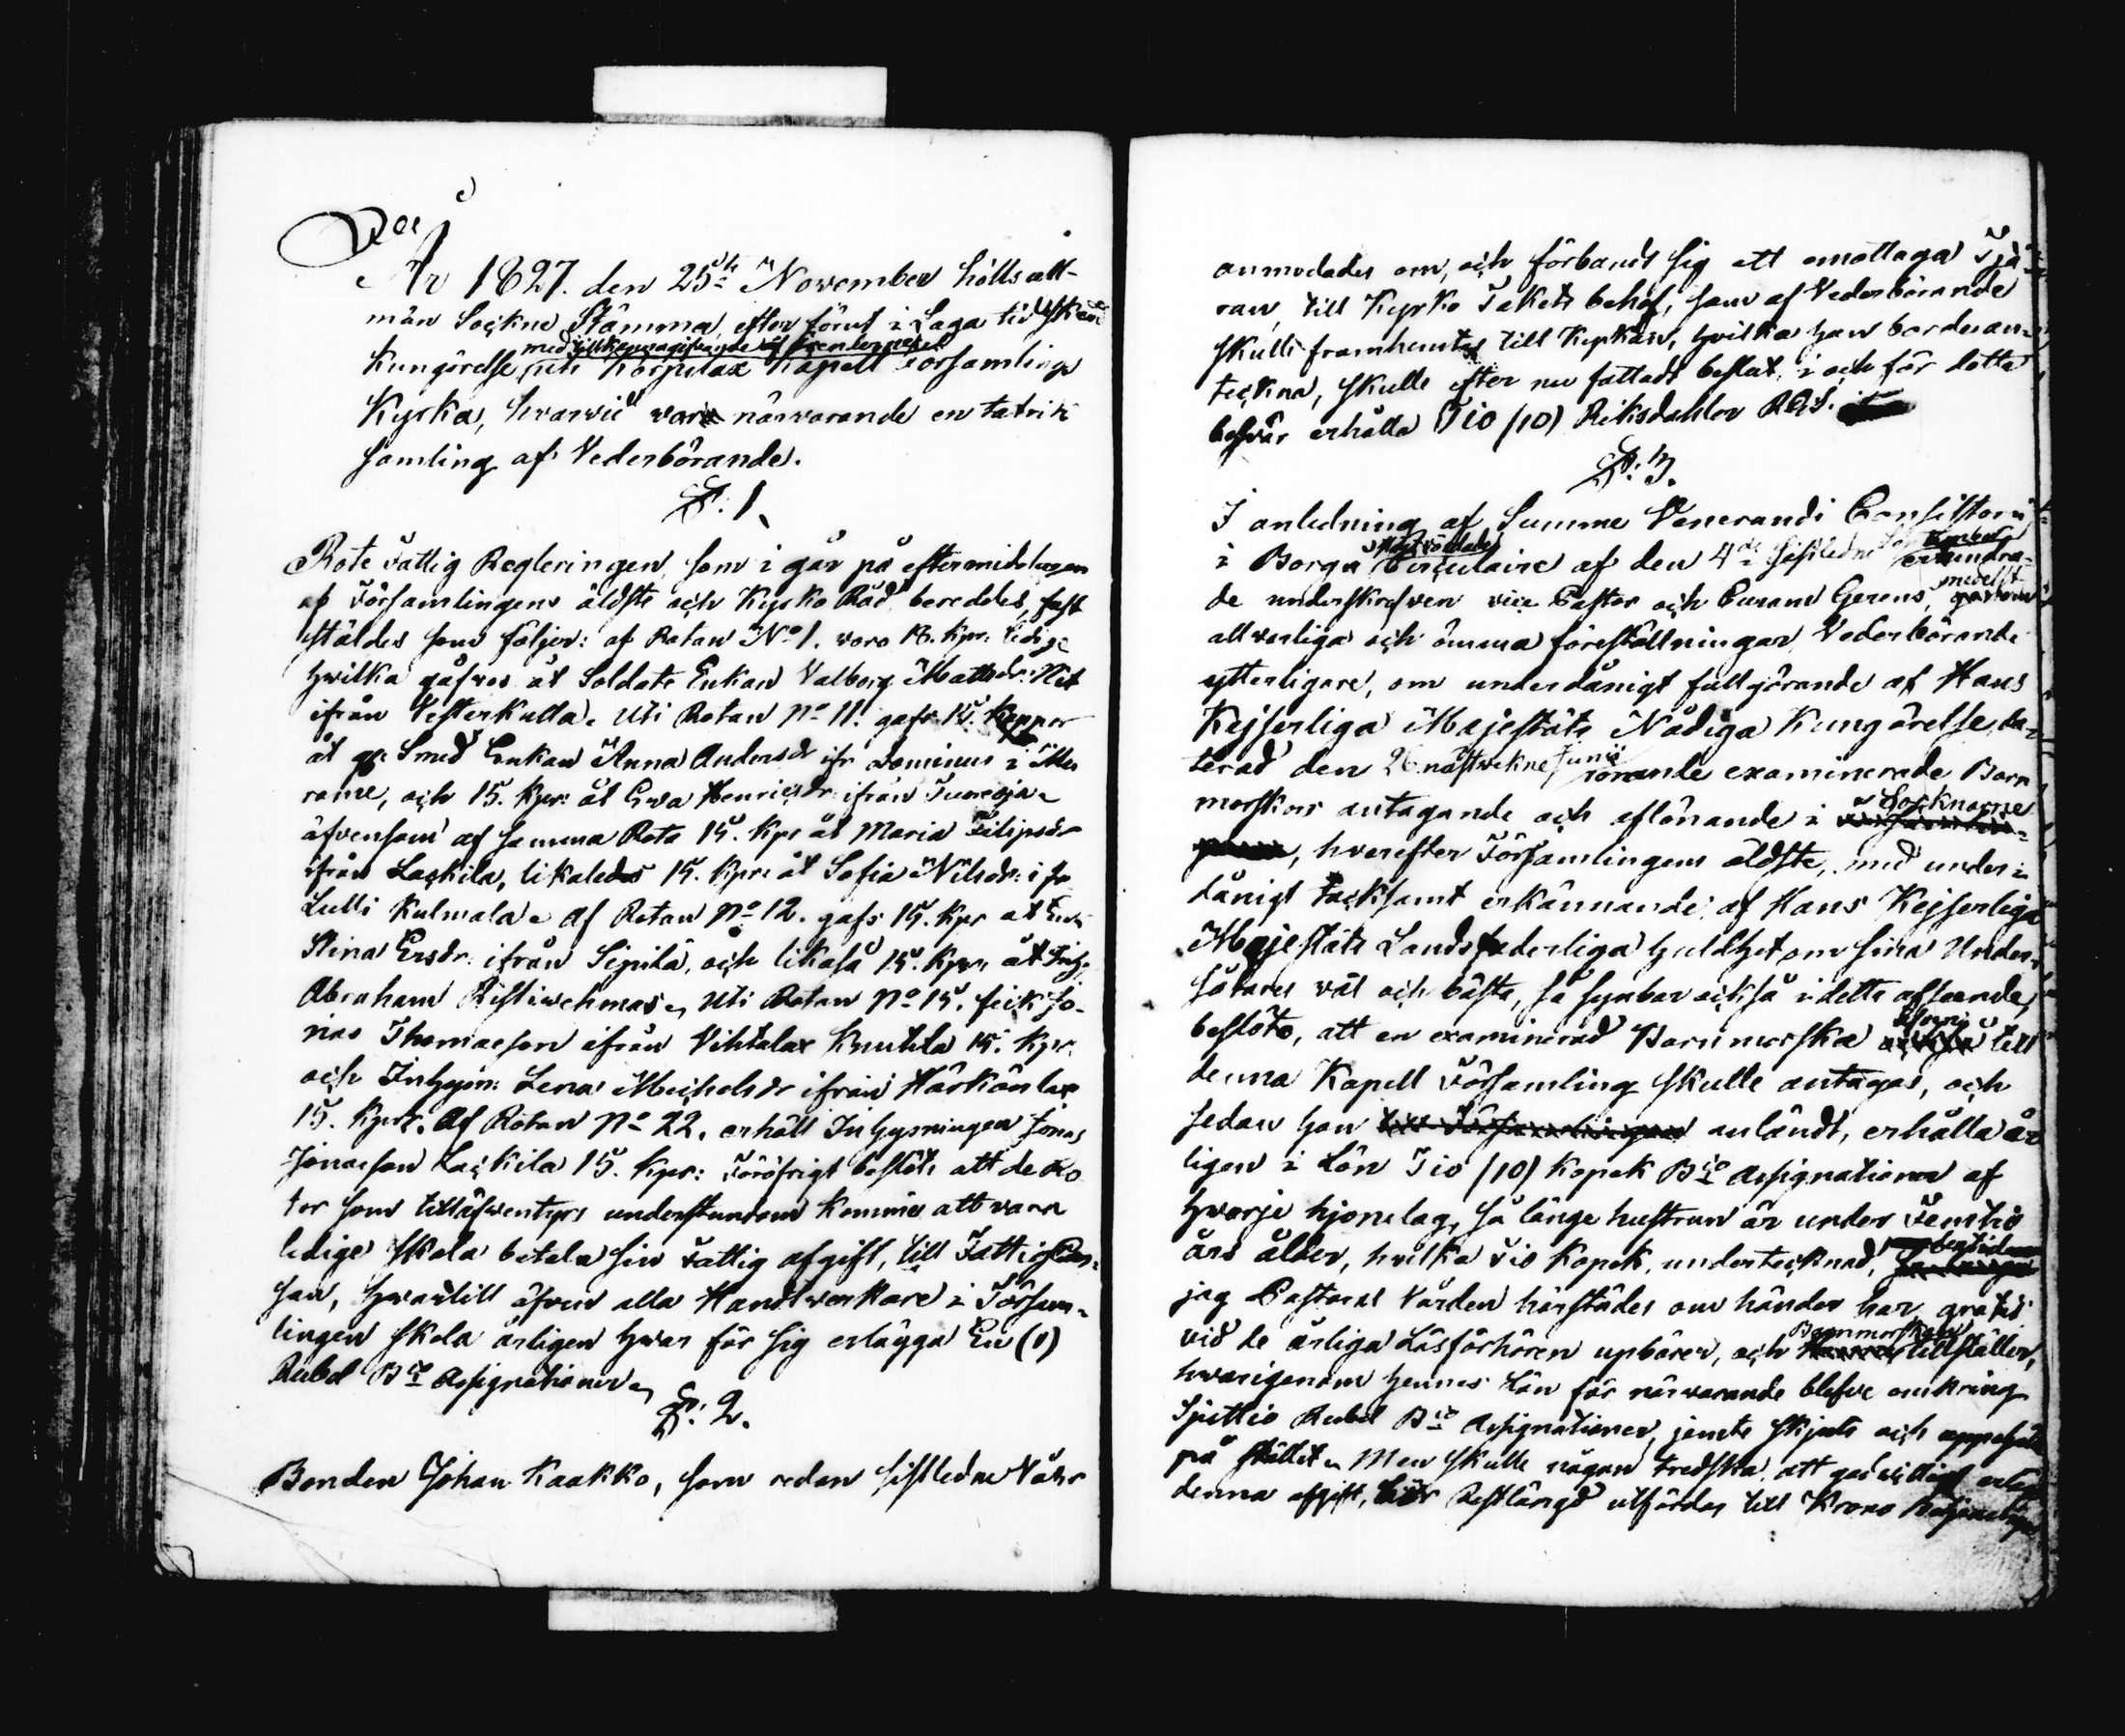 År 1827. den 25de November hölls all-
män Sockne Stämma, efter förut i Laga tid skedd
med tillkännagifvande af
Kungörelse uti Korpilax Kapell Församlings
Kyrka, hvarvid voro närvarande en talrik
samling af Vederbörande.
§: 1.
Rote Fattig Regleringen, som i går på eftermiddagen
af Församlingens äldste och Kyrko Råd bereddes, fast
stäldes som följer: af Rotan No 1. voro 18. Kpr. ledige
hvilka gåfvos åt Soldats Enkan Valborg Mattsdr
ifrån Vesterkulla. Uti Rotan No 11. gafs 15. Kappor
åt Smed Enkan Anna Andersdr ifr Dominus i
rame, och 15. Kpr: åt Ewa Henricsdr ifrån Tuomoja
äfvensom af samma Rota 15. Kpr åt Maria Filipsdr
ifrån Lackila, likaledes 15. Kpr: åt Sofia Nilsdr: ifr
Lulli Kulmala. Af Rotan No 12. gafs 15. Kpr åt
Stina Ersdr. ifrån Sipilä, och likaså 15. Kpr. åt Inh:
Abraham Ristiwehmas. Uti Rotan No 15. fick Jo-
nas Thomasson ifrån Vihtalax Knutila 15. Kpr.
och Inhysn: Lena Michelsdr ifrån Härkönlax
15. Kpr. Af Rotan No 22. erhöll Inhysningen Jonas
Jonasson Lackila 15. Kpr: Föröfrigt beslöts att de Ro
tor som tilläfwentyrs understundom komme att vara
ledige skola betala sin Fattig afgift, till Fattig Cas-
san, hwartill äfven alla Handtverkare i Försam-
lingen skola årligen hwar för sig erlägga En (1)
Rubel Bco Assignationer.
§: 2.
Bonden Johan Kaakko, som redan sistledne Våhr
anmodades om, och förbands sig att emottaga Tjä
ran, till Kyrko Takets behof, som af Vederbörande
skulle framhemtas till Kyrkan, hvilka han borde an-
teckna, skulle efter nu fattadt beslut i och för detta
besvär erhålla Tio (10) Riksdahler RGS.
§: 3.
I anledning af Summe Venerandi Consistorii
Högvördade
i Borgå Circulaire af den 4de sistledne erhindra-
medelst
de underskrefven vice Pastor och Curam Gerens,
allvarliga och ömma föreställningar Vederbörande
ytterligare, om underdånigt fullgörande af Hans
Kejserliga Majestäts Nådiga Kungörelse da-
terad den 26 nästvekne Junii rörande examinerade Barn
morskors antagande och aflönande i Socknarne
, hvarefter Församlingens äldste, med under-
dånigt tacksamt erkännande af Hans Kejserliga
Majestäts Landsfaderliga huldhet om sina Under-
såtares väl och bästa, så synbar också i detta afseende,
beslöto, att en examinerad Barnmorska äfven till
denna Kapell Församling skulle antagas, och
sedan hon till Församlingen anländt, erhålla år
ligen i Lön Tio (10) Kopek Bco Assignationer af
hwarje hjonelag, så länge hustrun är under Femtio
års ålder, hvilka Tio Kopek, undertecknad,
jag Pastorns Vården härstädes om händer har, gratis
vid de årliga Läsförhören upbärer, och Barnmorskan tillställer,
hwarigenom hennes Lön för närvarande blefve omkring
Sjuttio Rubel Bco Assignationer, jemte skjuts och uppehälle
på stället. Men skulle någon tredska att godvilligt erlägga
denna afgift, bör Restlängd utfärdas till Krono Betjeningen